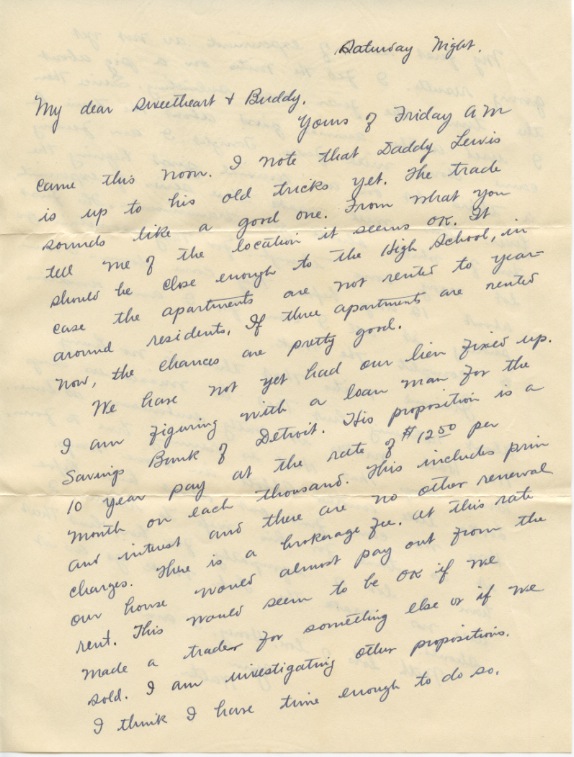 Saturday Night.
My dear Sweetheart & Buddy.
Yours of Friday AM
came this noon. I note that Daddy Lewis
is up to his old tricks yet. The trade
sounds like a good one. From what you
tell me of the location it seems OK. It
should be close enough to the High School, in
case the apartments are not rented to year-
around residents. If three apartments are rented
now, the chances are pretty good.
We have not yet had our lien fixed up.
I am figuring with a loan man for the
Savings Bank of Detroit. His proposition is a
10 year pay at the rate of $12.50 per
month on each thousand. This includes prin
and interest and there are no other renewal
charges. There is a brokerage fee. At this rate
our house would almost pay out from the
rent. This would seem to be OK if we
made a trade for something else or if we
sold. I am investigating other propositions.
I think I have time enough to do so.